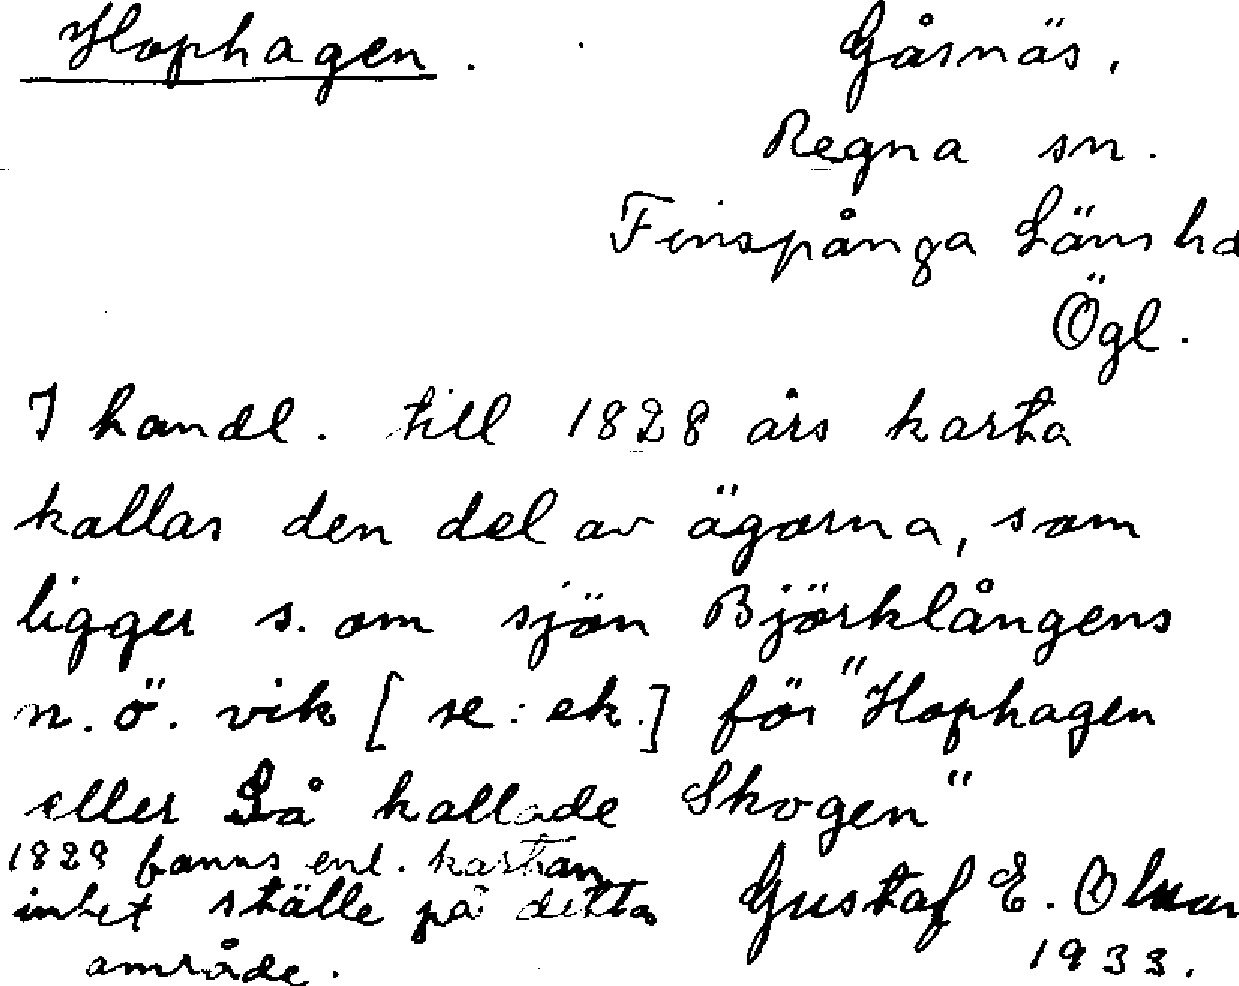 Hophagen.
Gåsnäs,
Regna sn.
Finspånga Läns hd
Ögl.
I handl. till 1828 års karta
kallas den del av ägorna, som
ligger s. om sjön Björklångens
n.ö. vik [se: ek.] för "Hophagen
eller Så kallade Skogen"
1828 fanns enl. kartan
intet ställe på detta
område.
Gustaf E. Olsson
1933.